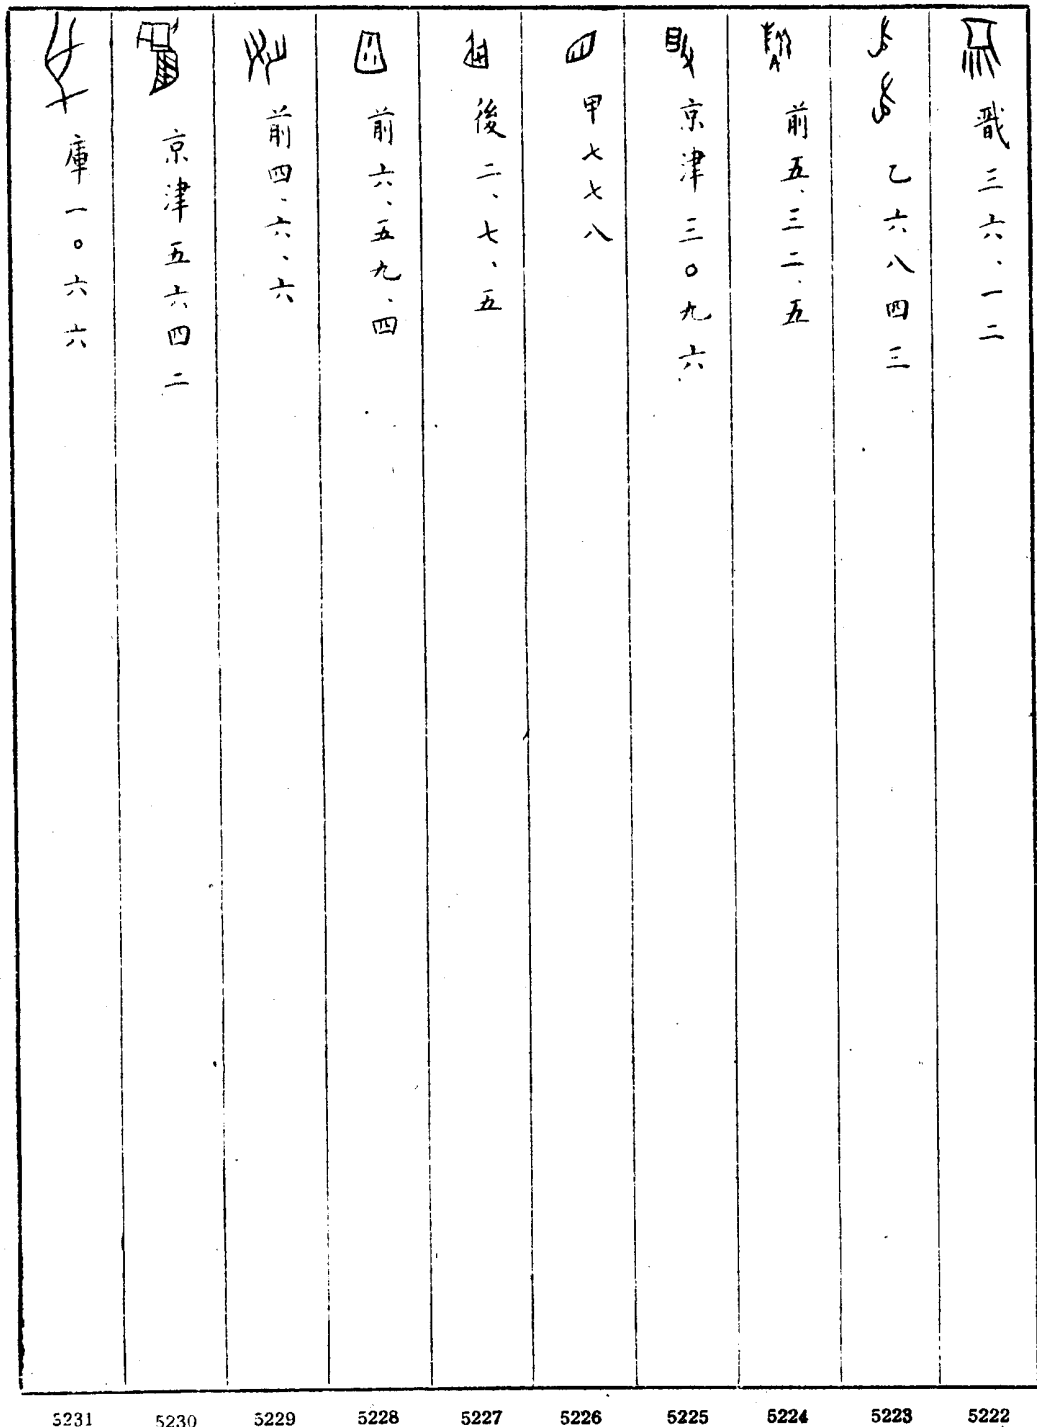 戩三六、一二
乙六八四三
前五、三二、五
京津三〇九六
甲七七八
後二、七、五
前六、五九、四
前四、六、六
京津五六四二
庫一〇六六
5231 5230 5229 5228 5227 5226 5225 5224 5223 5222